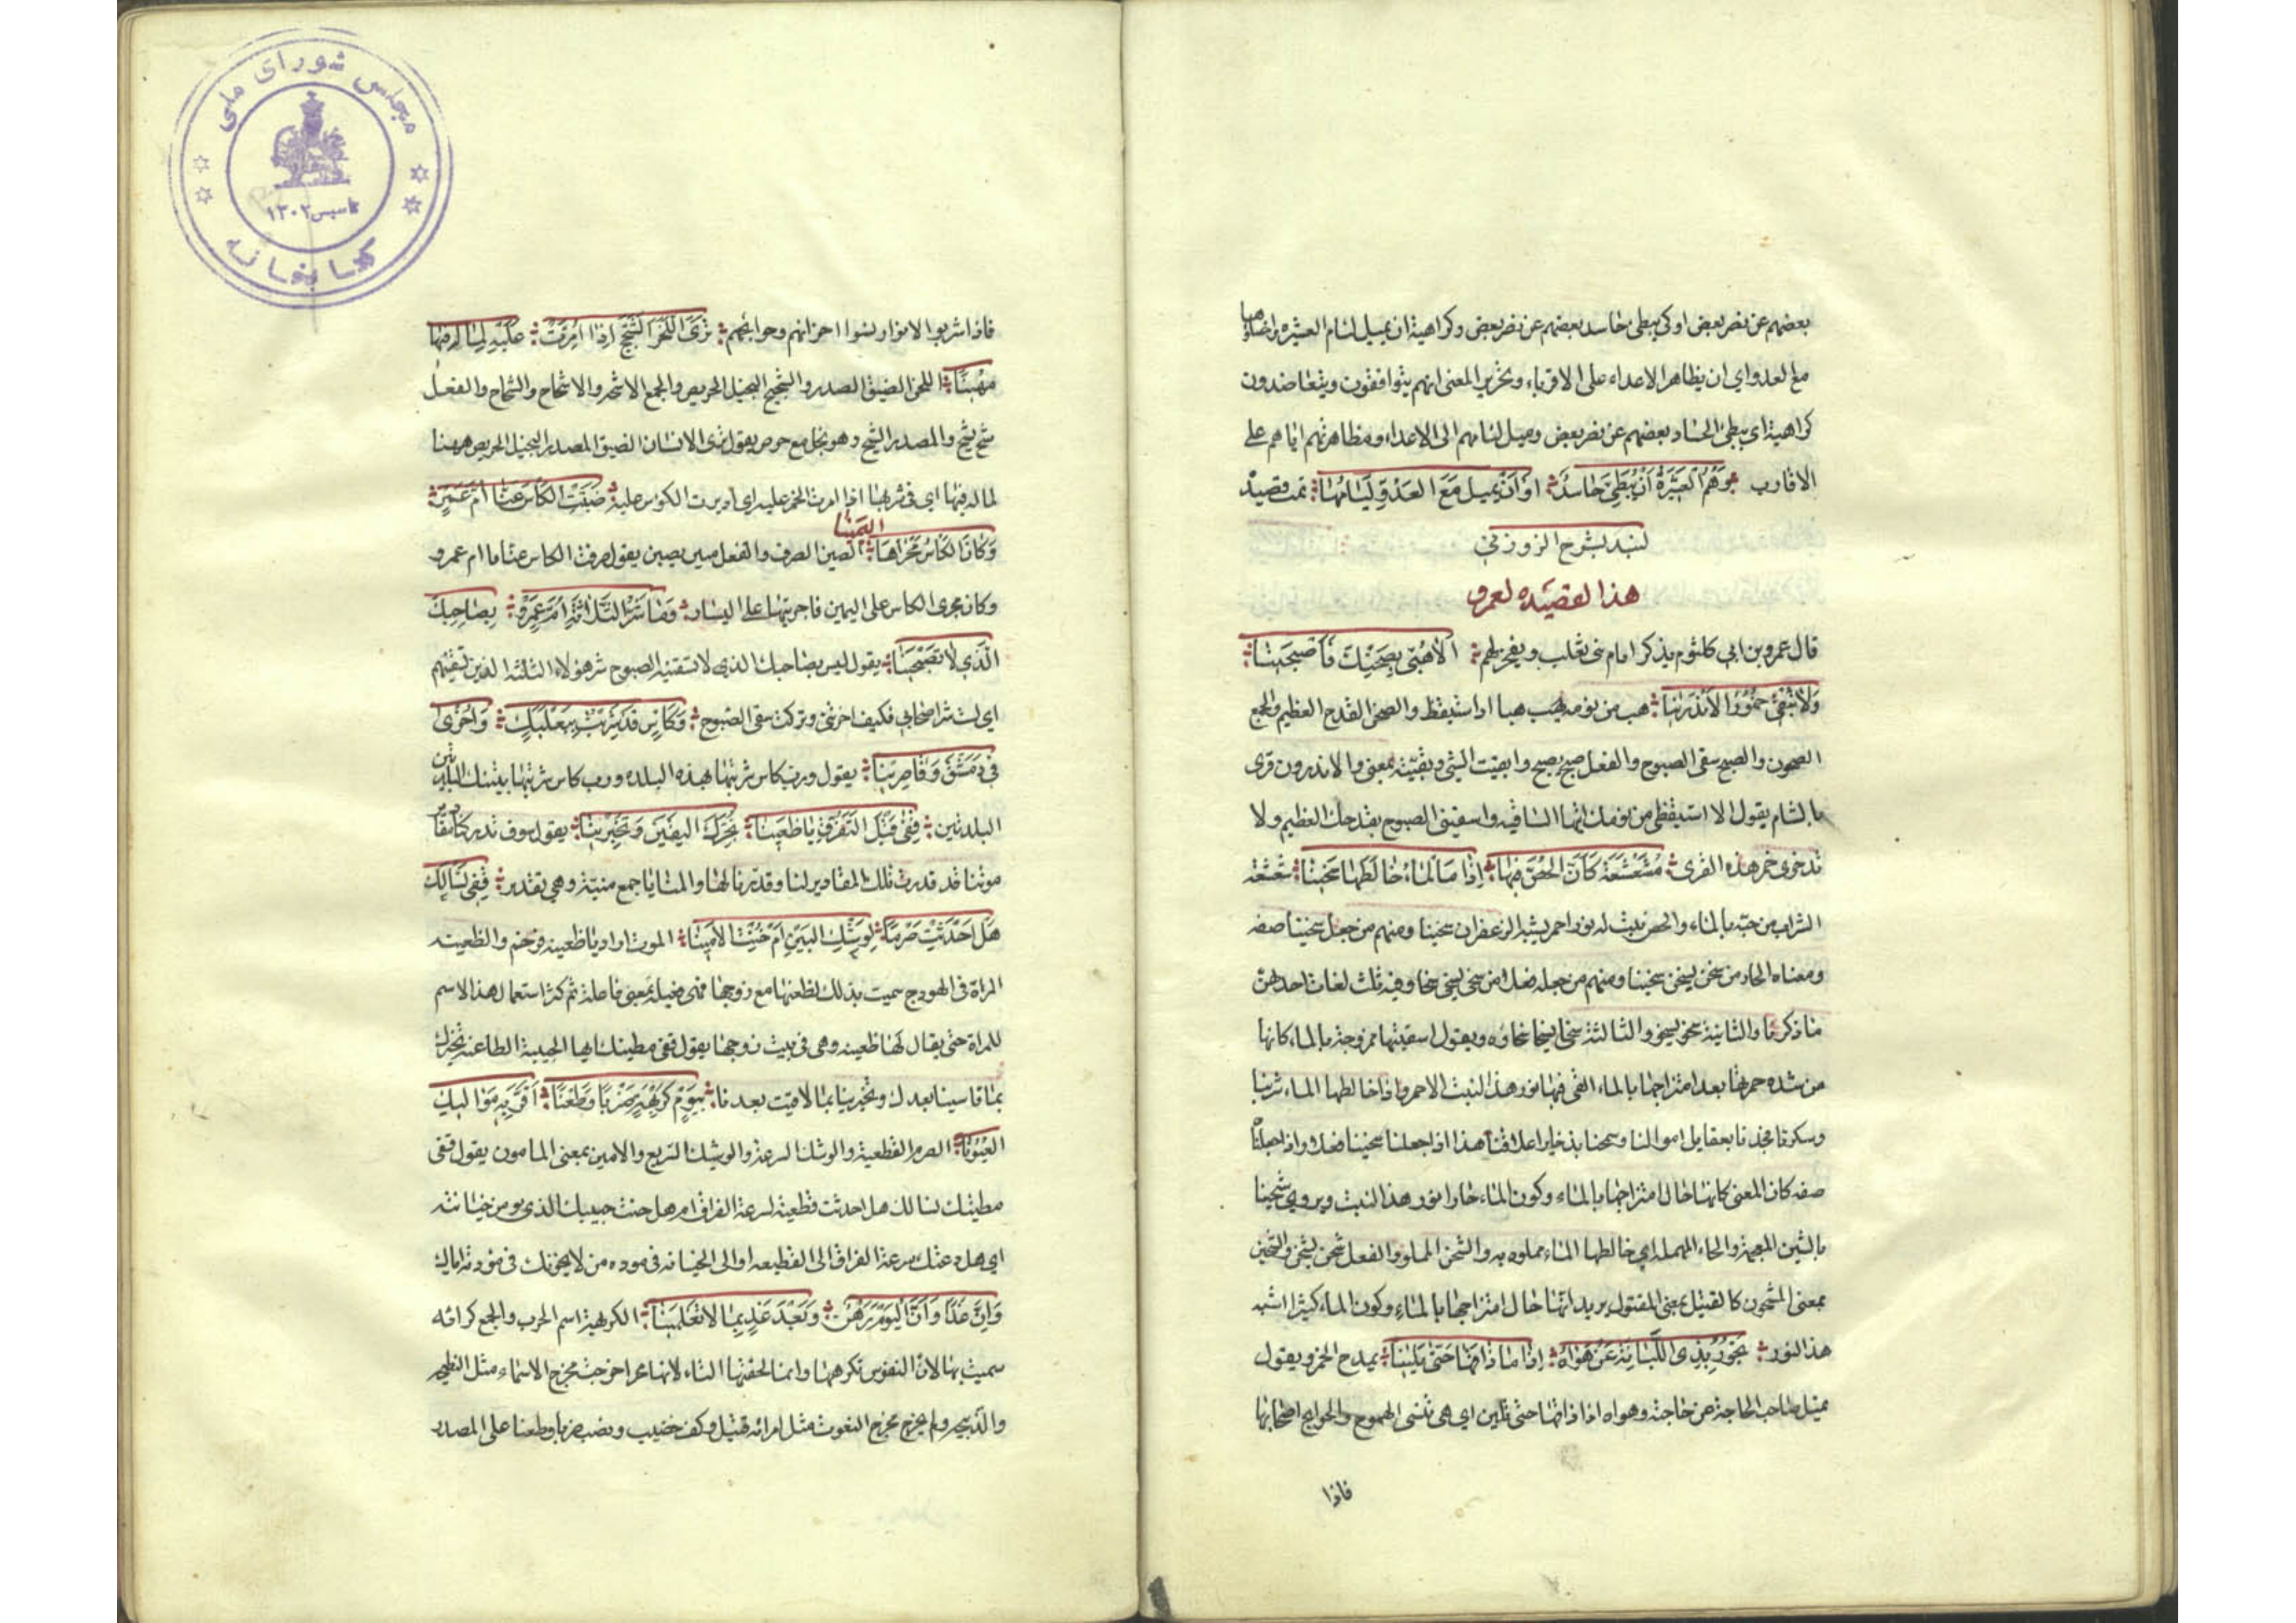 بعضهم عن نصر بعض او كى يبطى حاسد بعضهم عن نصر بعض وكراهية ان يميل لئام العشيره واخساؤها
مع العدو اى ان يظاهر الاعداء على الاقرباء وتحرير المعنى انهم يتوافقون ويتعاضدون
كراهية اى يبطى الحساد بعضهم عن نصر بعض وميل لئامهم الى الاعداء ومظاهرتهم اياهم على
الاقارب وَهُمُ العَشِيَرةُ اَنْ يُبَطِّئَ حَاسِدٌ اَوْ اَنْ يَميلَ مَعَ العَدُوِّ لِئَامُهَا تمت قصيدة
لبيد بشرح الزوزني
هذا القصيده لعمرو
قال عمرو بن ابى كلثوم يذكر ايام بنى تغلب ويفخر بهم اَلاَهُبّى بِصَحْنِكِ فَاَصْبَحينَا
وَلاَ تُبْقِي خُمُورَ الاَنْدَرِينَا هب من نومه يهب هبا اذا استيقظ والصحن القدح العظيم والجمع
الصحون والصبح سقى الصبوح والفعل صبح يصبح وابقيت الشئ وبقيته بمعنى والاندرون قرى
بالشام يقول الا استيقظى من نومك ايتها الساقيه واسقينى الصبوح بقدحك العظيم ولا
تدخرى خمر هذه القرى مُشَعْشَعَةً كَاَنَّ الحُصَّ فِيهَا اِذَا مَا المَاءُ خَالَطَهَا سَخِينَا شعشعة
الشراب مزجته بالماء والحص نبت له نور احمر يشبه الزعفران سخينا ومنهم من جعل سخينا صفه
ومعناه الحار من سخن يسخن سخينا ومنهم من جعله فعلا من سخى يسخى سخا وفيه ثلث لغات احدهن
ما ذكرنا والثانية سخو يسخو والثالثة سخا يسخا سخاوه ويقول اسقينها ممزوجة بالماء كانها
من شده حمرتها بعد امتزاجها بالماء القى فيها نور هذا النبت الاحمر واذا خالطها الماء شربنا
وسكرنا بعقايل اموالنا وسمحنا بذخاير اعلاقنا هذا اذا جعلنا سخينا فعلا واذا جعلناه
صفه كان المعنى كانها حال امتزاجها بالماء وكون الماء حارا نور هذا النبت ويروى شحينا
بالشين المعجمة والحاء المهمله اى خالطها الماء مملوه به والشحن الملو والفعل شحن يشحن والشحين
بمعنى المشحون كالقتيل بمعنى المقتول يريد انها حال امتزاجها بالماء وكون الماء كثيرا اشبه
هذا النور تَجُورُ بِذِى اللُّبَانَةِ عَنْ هَوَاهُ اِذَا مَا ذَاقَهَا حَتّى يَلِينَا يمدح الخمر ويقول
يميل صاحب الحاجة عن حاجته وهواه اذا ذاقها حتى تلين اى هى تنسى الهموم والحوايج اصحابها
فاذا
مجلس شوراى ملى
تاسيس ١٣٠٢
كتابخانه
فاذا شربوا لانوا ونسوا احزانهم وحوائجهم تَرَى اللَّحِزَ الشَّحِيحَ اِذَا اُمِرَّتْ عَلَيْهِ لِمَالِهِ فِيهَا
مُهِينَا اللحز الضيق الصدر والشحيح البخيل الحريص والجمع الاشحه والاشحاح والشحاح والفعل
شح يشح والمصدر الشح وهو بخل مع حرص يقول ترى الانسان الضيق الصدر البخيل الحريص مهينا
لماله فيها اى فى شربها اذا امرت الخمر عليه اى اديرت الكوس عليه صَبَنْتِ الكَأسَ عَنَّا اُمَّ عَمْرٍو
وَكَانَ الكَأسُ مَجْرَاهَا اليَمِينَا الصبن الصرف والفعل صبن يصبن يقول صرفت الكاس عنا يا ام عمرو
وكان مجرى الكاس على اليمين فاجريتها على اليسار وَمَا شَرُّ الثَّلاثَةِ اُمَّ عَمْرٍو بِصَاحِبِكِ
الَّذِى لاَ تَصْبَحِينَا يقول ليس بصاحبك الذى لا تسقينه الصبوح شر هؤلاء الثلثه الذين تسقينهم
اى لست شر اصحابى فكيف اخرتنى وتركت سقى الصبوح وَكَأسٍ قَدْ شَرِبْتُ بِبَعْلَبَكٍّ وَاُخْرَى
فِى دِمَشْقَ وَقَاصِرِينَا يقول ورب كاس شربتها بهذه البلده ورب كاس شربتها بتينك البلدتين
البلدتين قِفِى قَبْلَ التَّفَرُّقِ يَا ظَعِينَا نُخَبِّرْكِ اليَقِينَ وَتُخْبِرِينَا يقول سوف تدركنا
موتنا قد قدرت تلك المقادير لنا وقدرنا لها والمنايا جمع منية وهى تقدير قِفِى نَسْألْكِ
هَلْ اَحْدَثْتِ صَرْمًا لِوَشْكِ البَيْنِ اَمْ خُنْتِ الاَمِينَا الموت اراد يا ظعينه فرخم والظعينه
المراة فى الهودج سميت بذلك لظعنها مع زوجها فهى فعيلة بمعنى فاعلة ثم كثر استعمال هذا الاسم
للمراة حتى يقال لها ظعينه وهى فى بيت زوجها يقول قفى مطيتك ايها الحبيبة الظاعنه نخبرك
بما قاسينا بعدك وتخبرينا بما لاقيت بعدنا بِيَوْمِ كَرِيهَةٍ ضَرْبًا وَطَعْنًا اَقَرَّ بِهِ مَوَالِيكِ
العُيُونَا الصرم القطيعة والوشك السرعة والوشيك السريع والامين بمعنى المامون يقول قفى
مطيتك نسالك هل احدثت قطيعة لسرعة الفراق ام هل خنت حبيبك الذى يومن خيانته
اى هل دعتك سرعة الفراق الى القطيعه او الى الخيانه فى موده من لا يخونك فى مودته اياك
وَاِنَّ غَدًا وَاَنَّ اليَوْمَ رَهْنٌ وَبَعْدَ غَدٍ بِمَا لاَ تَعْلَمِينَا الكريهة اسم الحرب والجمع كرائه
سميت بها لان النفوس تكرهها وانما لحقتها التاء لانها اخرجت مخرج الاسماء مثل النطيحه
والذبيحه ولم يخرج مخرج النعوت مثل امراة قتيل وكف خضيب ونصب ضربا وطعنا على المصدر